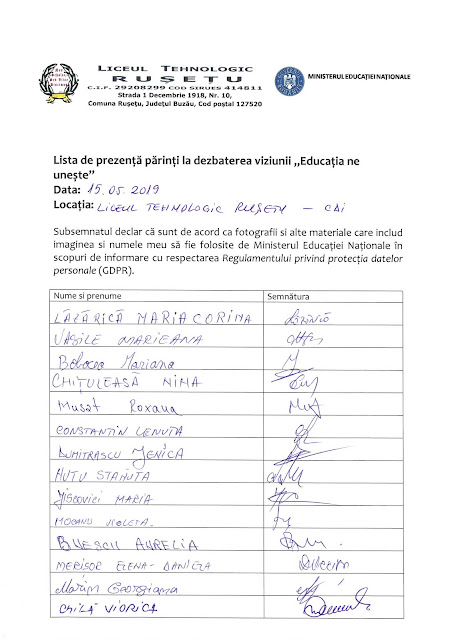 LICEUL TEHNOLOGIC
RUȘEȚU
C.I.F. 29208299 COD SIRUES 414811
Strada 1 Decembrie 1918, Nr. 10,
Comuna Rușețu, Județul Buzău, Cod poștal 127520
MINISTERUL EDUCAȚIEI NAȚIONALE
Lista de prezență părinți la dezbaterea viziunii „Educația ne
unește”
Data: 15.05.2019
Locația: LICEUL TEHNOLOGIC RUȘEȚU – CDI
Subsemnatul declar că sunt de acord ca fotografii si alte materiale care includ
imaginea si numele meu să fie folosite de Ministerul Educației Naționale în
scopuri de informare cu respectarea Regulamentului privind protecția datelor
personale (GDPR).
Nume si prenume Semnătura
LĂZĂRICĂ MARIA CORINA
VASILE MARIEANA
Bobocea Mariana
CHIȚULEASĂ NINA
Musat Roxana
CONSTANTIN LENUȚA
DUMITRASCU JENICA
HUTU STANUTA
MARIA
MOCANU VIOLETA.
BUESCU AURELIA
MERISOR ELENA-DANIELA
Marin Georgiana
CHILĂ VIORICA